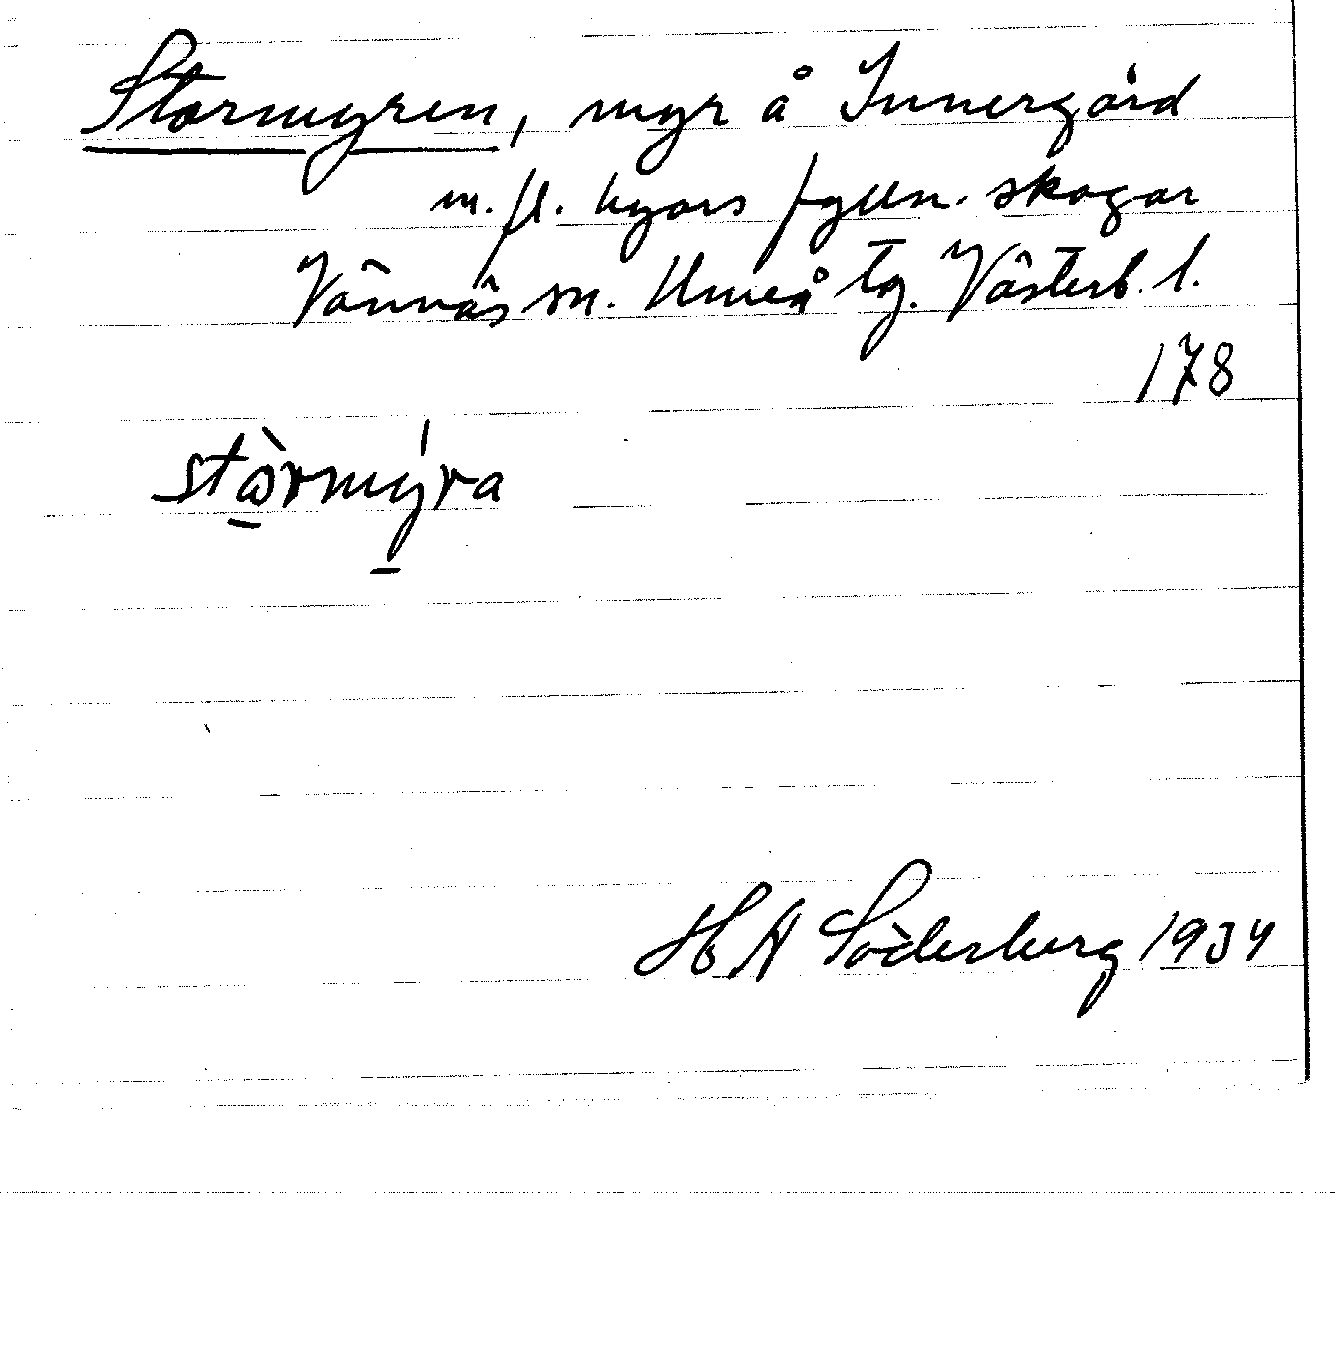 Stormyren, myr å Innergård
m. fl. byars skogar
Vännäs sn. Umeå tg. Västerb. l.
178
stòrmýra
H A Söderberg 1934